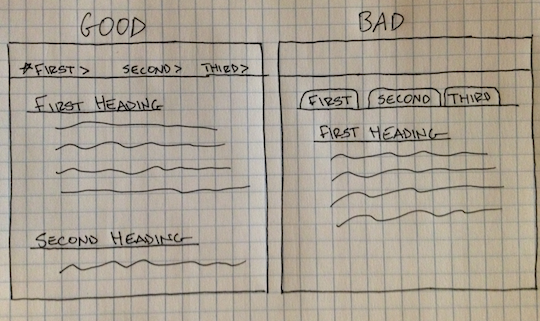 GOOD
BAD
*FIRST > SECOND > THIRD >
FIRST HEADING
SECOND HEADING
FIRST SECOND THIRD
FIRST HEADING